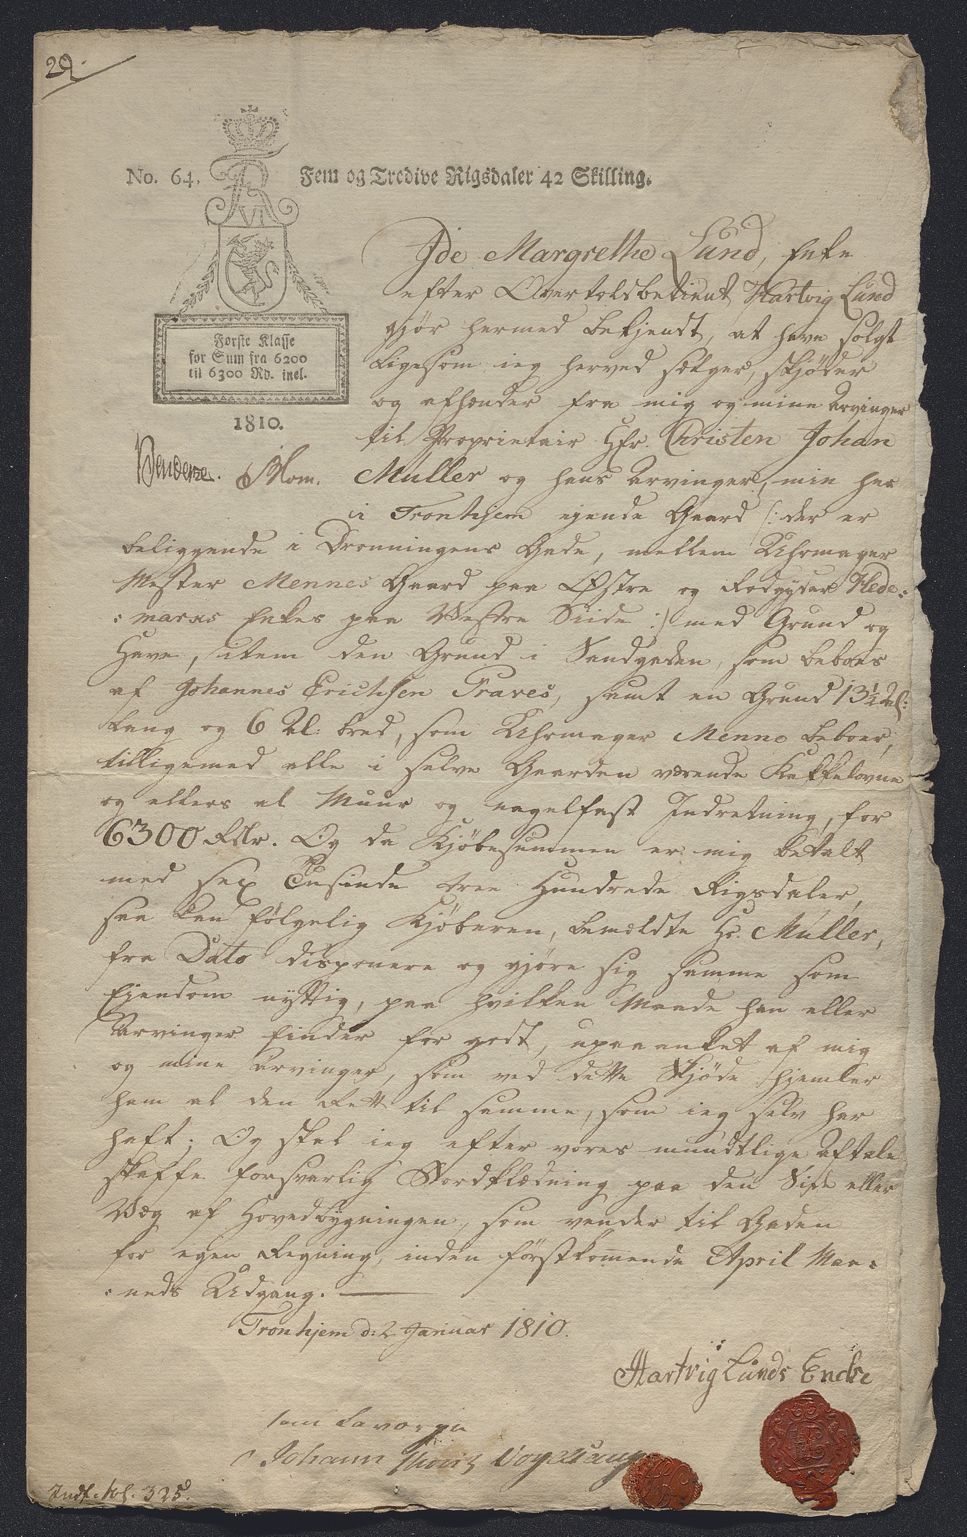 29.
No. 64.
Fem og Tredive Rigsdaler 42 Skilling.
Første Klasse
for Sum fra 6200
til 6300 Rd. incl.
1810.
Blom.
Ide Margrethe Lund, Enke
efter Overtolsbetient Hartvig Lund
gjør hermed bekjendt, at have solgt
ligesom ieg herved sælger, skjøder
og afhænder fra mig og mine Arvinger
til Proprietair Hr. Christen Johan
Müller og hans Arvinger, min her
i Tronhjem ejende Gaard /: der er
beliggende i Dronningens Gade, mellem Uhrmager
Mester Mennes Gaard paa Østre og Hede-
-marks Enkes paa Vestre Siide :/ med Grund og
Have, item den Grund i Sandgaden, som beboes
af Johannes Erichsen Traves, samt en Grund 13½ Al:
lang og 6 Al: bred, som Uhrmager Menne beboer,
tilligemed alle i selve Gaarden værende Kakkelovne
og ellers al Muur og nagelfast Indretning, for
6300 Rdlr. Og da Kjøbesummen er mig betalt
med sex Tusinde tree Hundrede Rigsdaler,
saa kan følgelig Kjøberen, bemældte Hr. Müller,
fra Dato disponere og gjøre sig samme som
Ejendom nyttig, paa hvilken Maade han eller
Arvinger finder for godt, upaaanket af mig
og mine Arvinger, som ved dette Skjøde hjemler
ham al den Rett til samme, som ieg selv har
haft; Og skal ieg efter vores mundtlige Aftale
skaffe forsvarlig Bordklædning paa den Side eller
Væg af Hovedbygningen, som vender til Gaden
for egen Regning, inden førstkommende April Maa-
-neds Udgang.
Tronhjem d: 2 Januar 1810.
Hartvig Lunds Encke
som Lavværge
Johann
Indf. fol. 325.